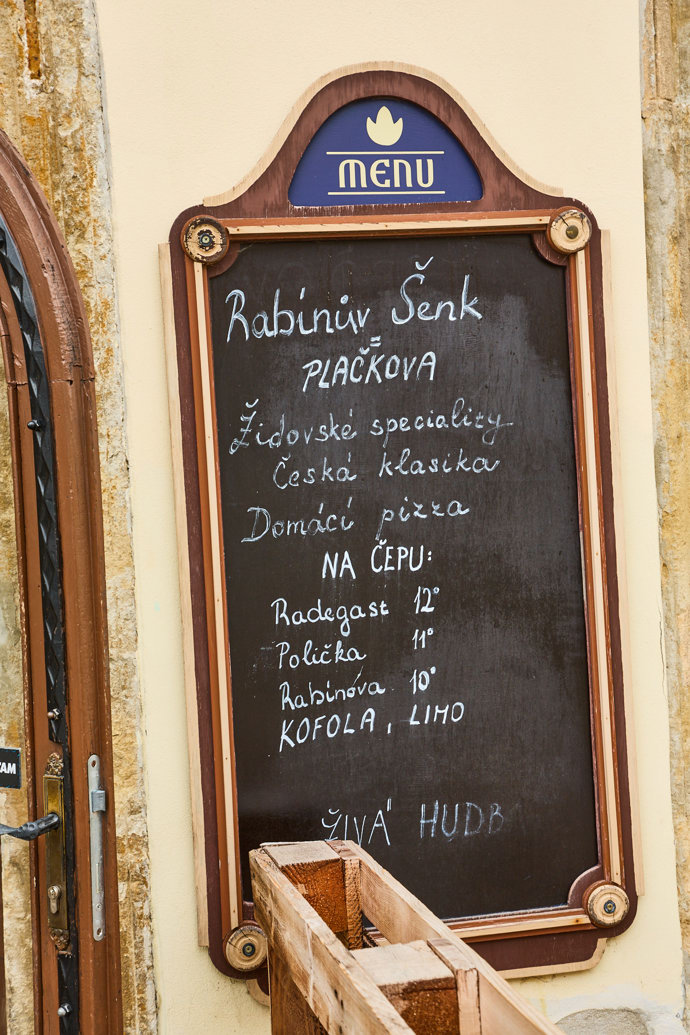 MENU
Rabínův Šenk
=
PLAČKOVA
Židovské speciality
Česká klasika
Domácí pizza
NA ČEPU:
Radegast 12°
Polička 11°
Rabínova 10°
KOFOLA, LIMO
ŽIVÁ HUDB